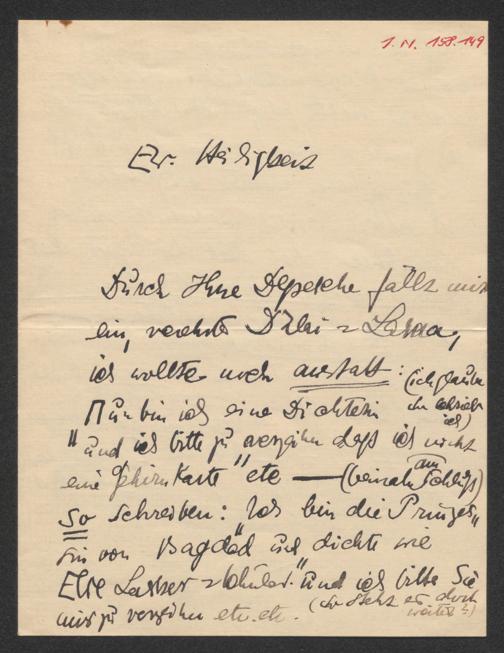 I. N. 158.149
Ew. Heiligkeit
Durch Ihre Depesche fällt mir
ein, verehrter Dalai = Lama,
ich wollte noch anstatt: (ich glaube
so schrieb
ich)
Nun bin ich eine Dichterin
"und ich bitte zu verzeihn daß ich nicht
eine Gehirnkarte" etc — (beinah am Schluß)
So schreiben: "Ich bin die Prinzes"
sin von Bagdad und dichte wie
Else Lasker = Schüler." und ich bitte Sie
mir zu verzeihn etc. etc. (so steht es doch
weiter?)